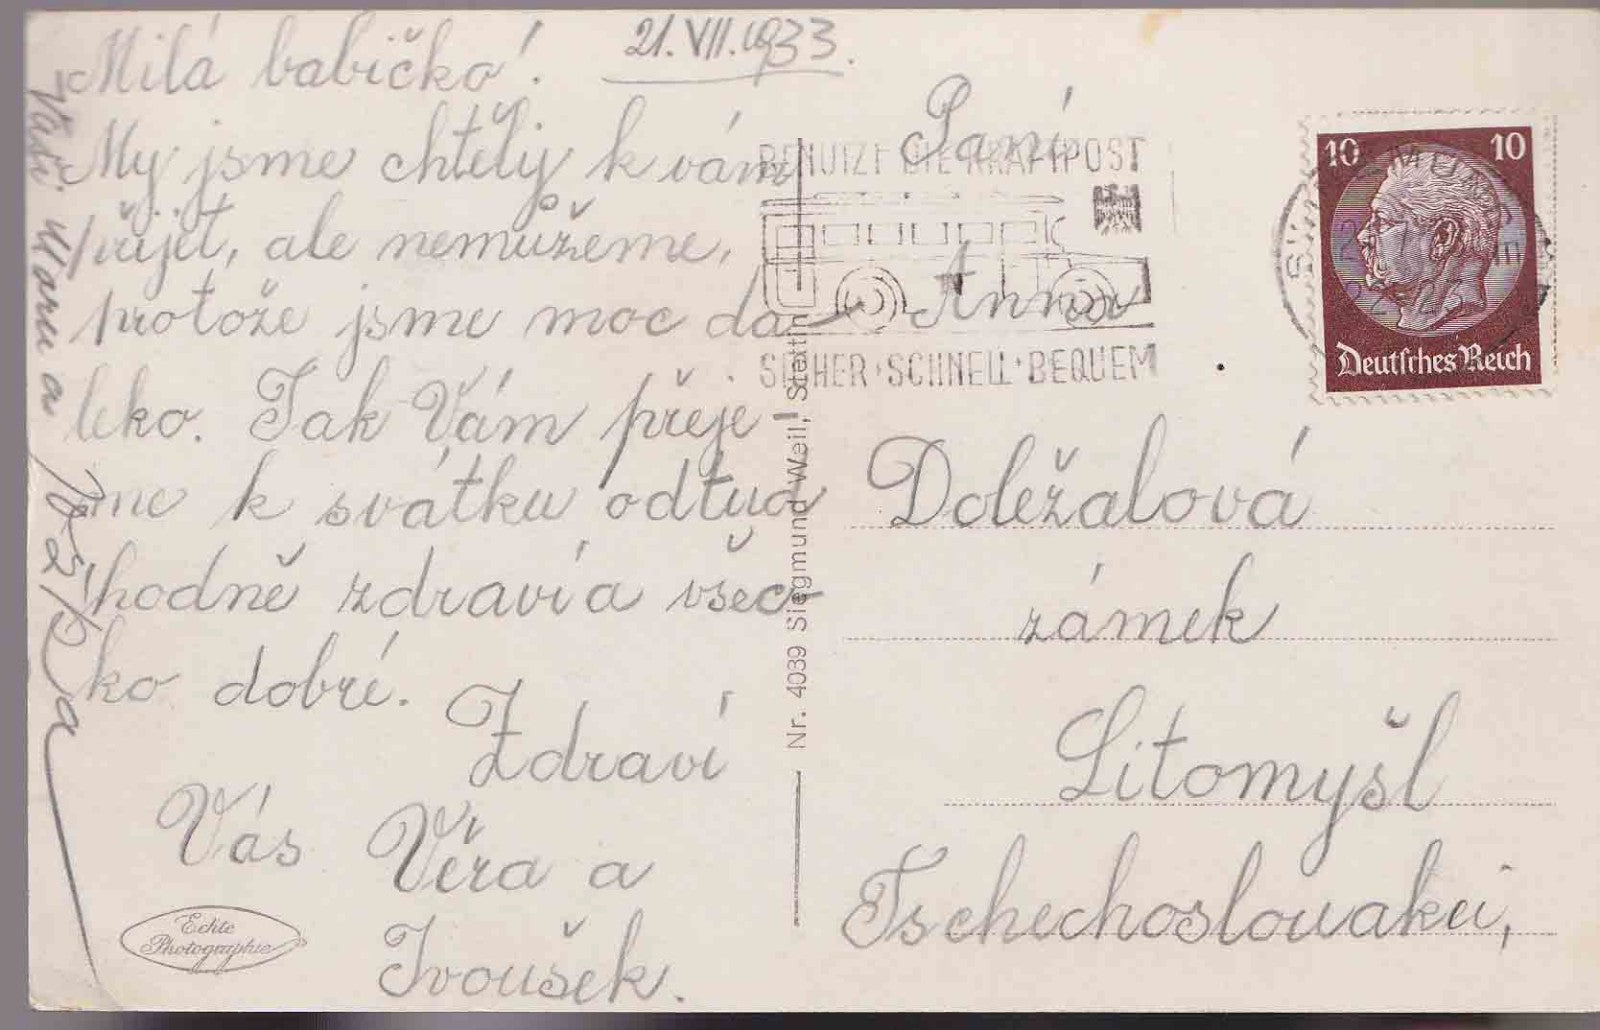 Milá babičko!
21. VII. 1933.
My jsme chtěly k vám
přijet, ale nemůžeme,
protože jsme moc da-
leko. Tak Vám přeje-
me k svátku odtud
hodně zdraví a všec-
ko dobré.
Zdraví
Vás Věra a
Ivoušek.
Vaši
a
Paní
Anna
Doležalová
zámek
Litomyšl
Tschechoslovakei,
BENUTZT DIE KRAFTPOST
SICHER·SCHNELL·BEQUEM
10 10
Deutsches Reich
Nr. 4039 Siegmund Weil, Stettin
Echte
Photographie